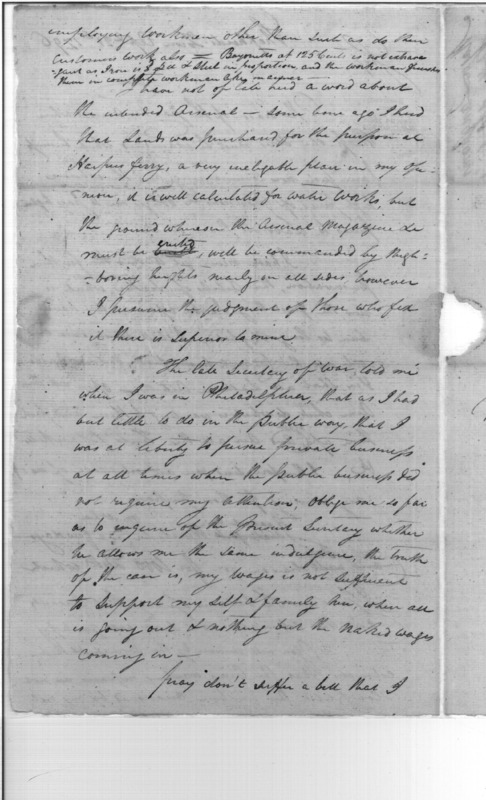 employing workmen other than such as do their
Customers work also = Bayonetts at 125 Cents is not extrava
gant as Iron is & Steel in proportion and the workmen
them in compleat workman like manner
have not of late herd a word about
the intended Arsenal — some time ago I herd
that Lands was purchased for the purpose at
Harpers ferry, a very ineligable place in my opi-
nion, it is well calculated for water works, but
the ground whereon the Arsenal Magazine &c
must be erected, will be commanded by Nigh-
-boring heights nearly on all sides, however
I presume the judgment of those who fixd
it there is Superior to mine
The late Secretary of War, told me
when I was in Philadelphia, that as I had
but little to do in the Public way, that I
was at liberty to pursue private business
at all times when the public business did
not require my attention; oblige me so far
as to enquire of the present Secretary whether
he allows me the same indulgence, the truth
of the case is, my wages is not sufficient
to support my self & family here, when all
is going out & nothing but the naked wages
coming in —
pray don't suffer a bill that I